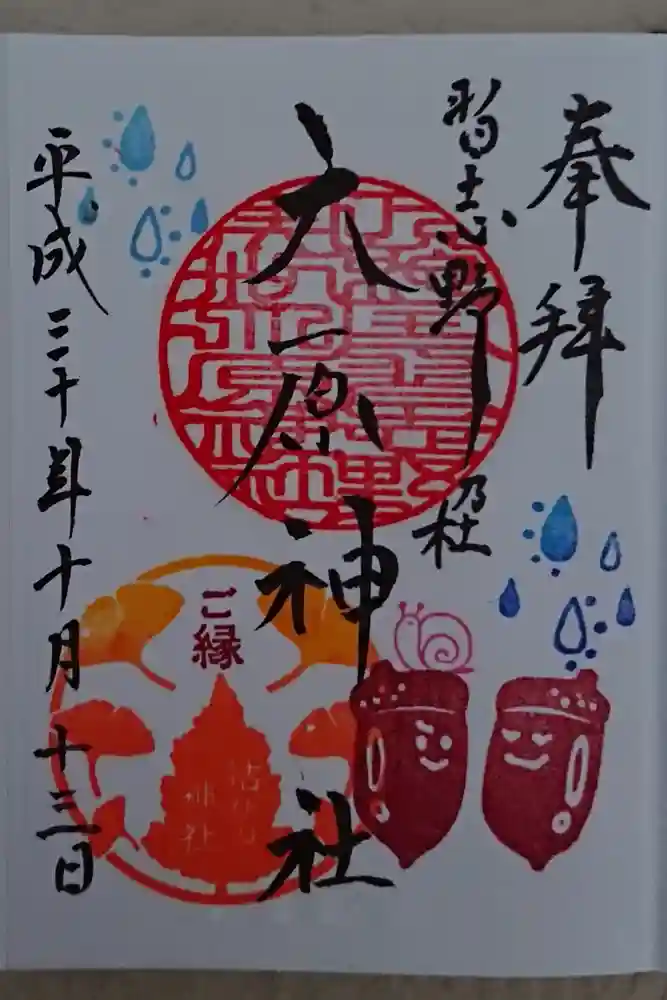 奉拝
習志野乃杜
大原神社
平成三十年十月十三日
ご縁
神社